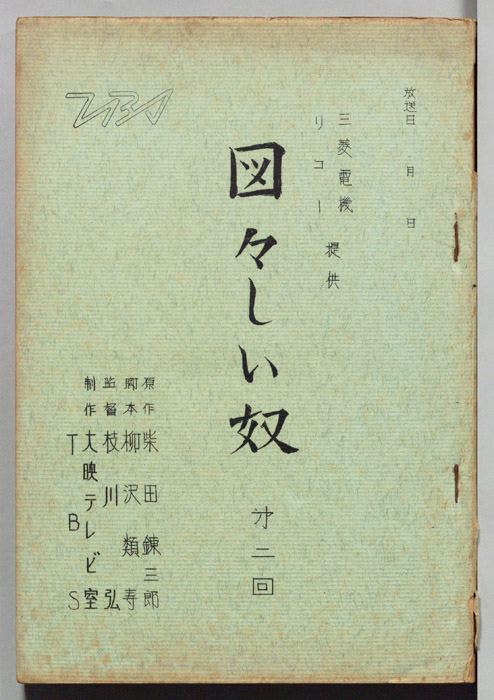 放送日 月 日
三菱電機
リコー
提供
図々しい奴
才二回
原作 柴田錬三郎
脚本 柳沢類寿
監督 枝川弘
制作 大映テレビ室
TBS